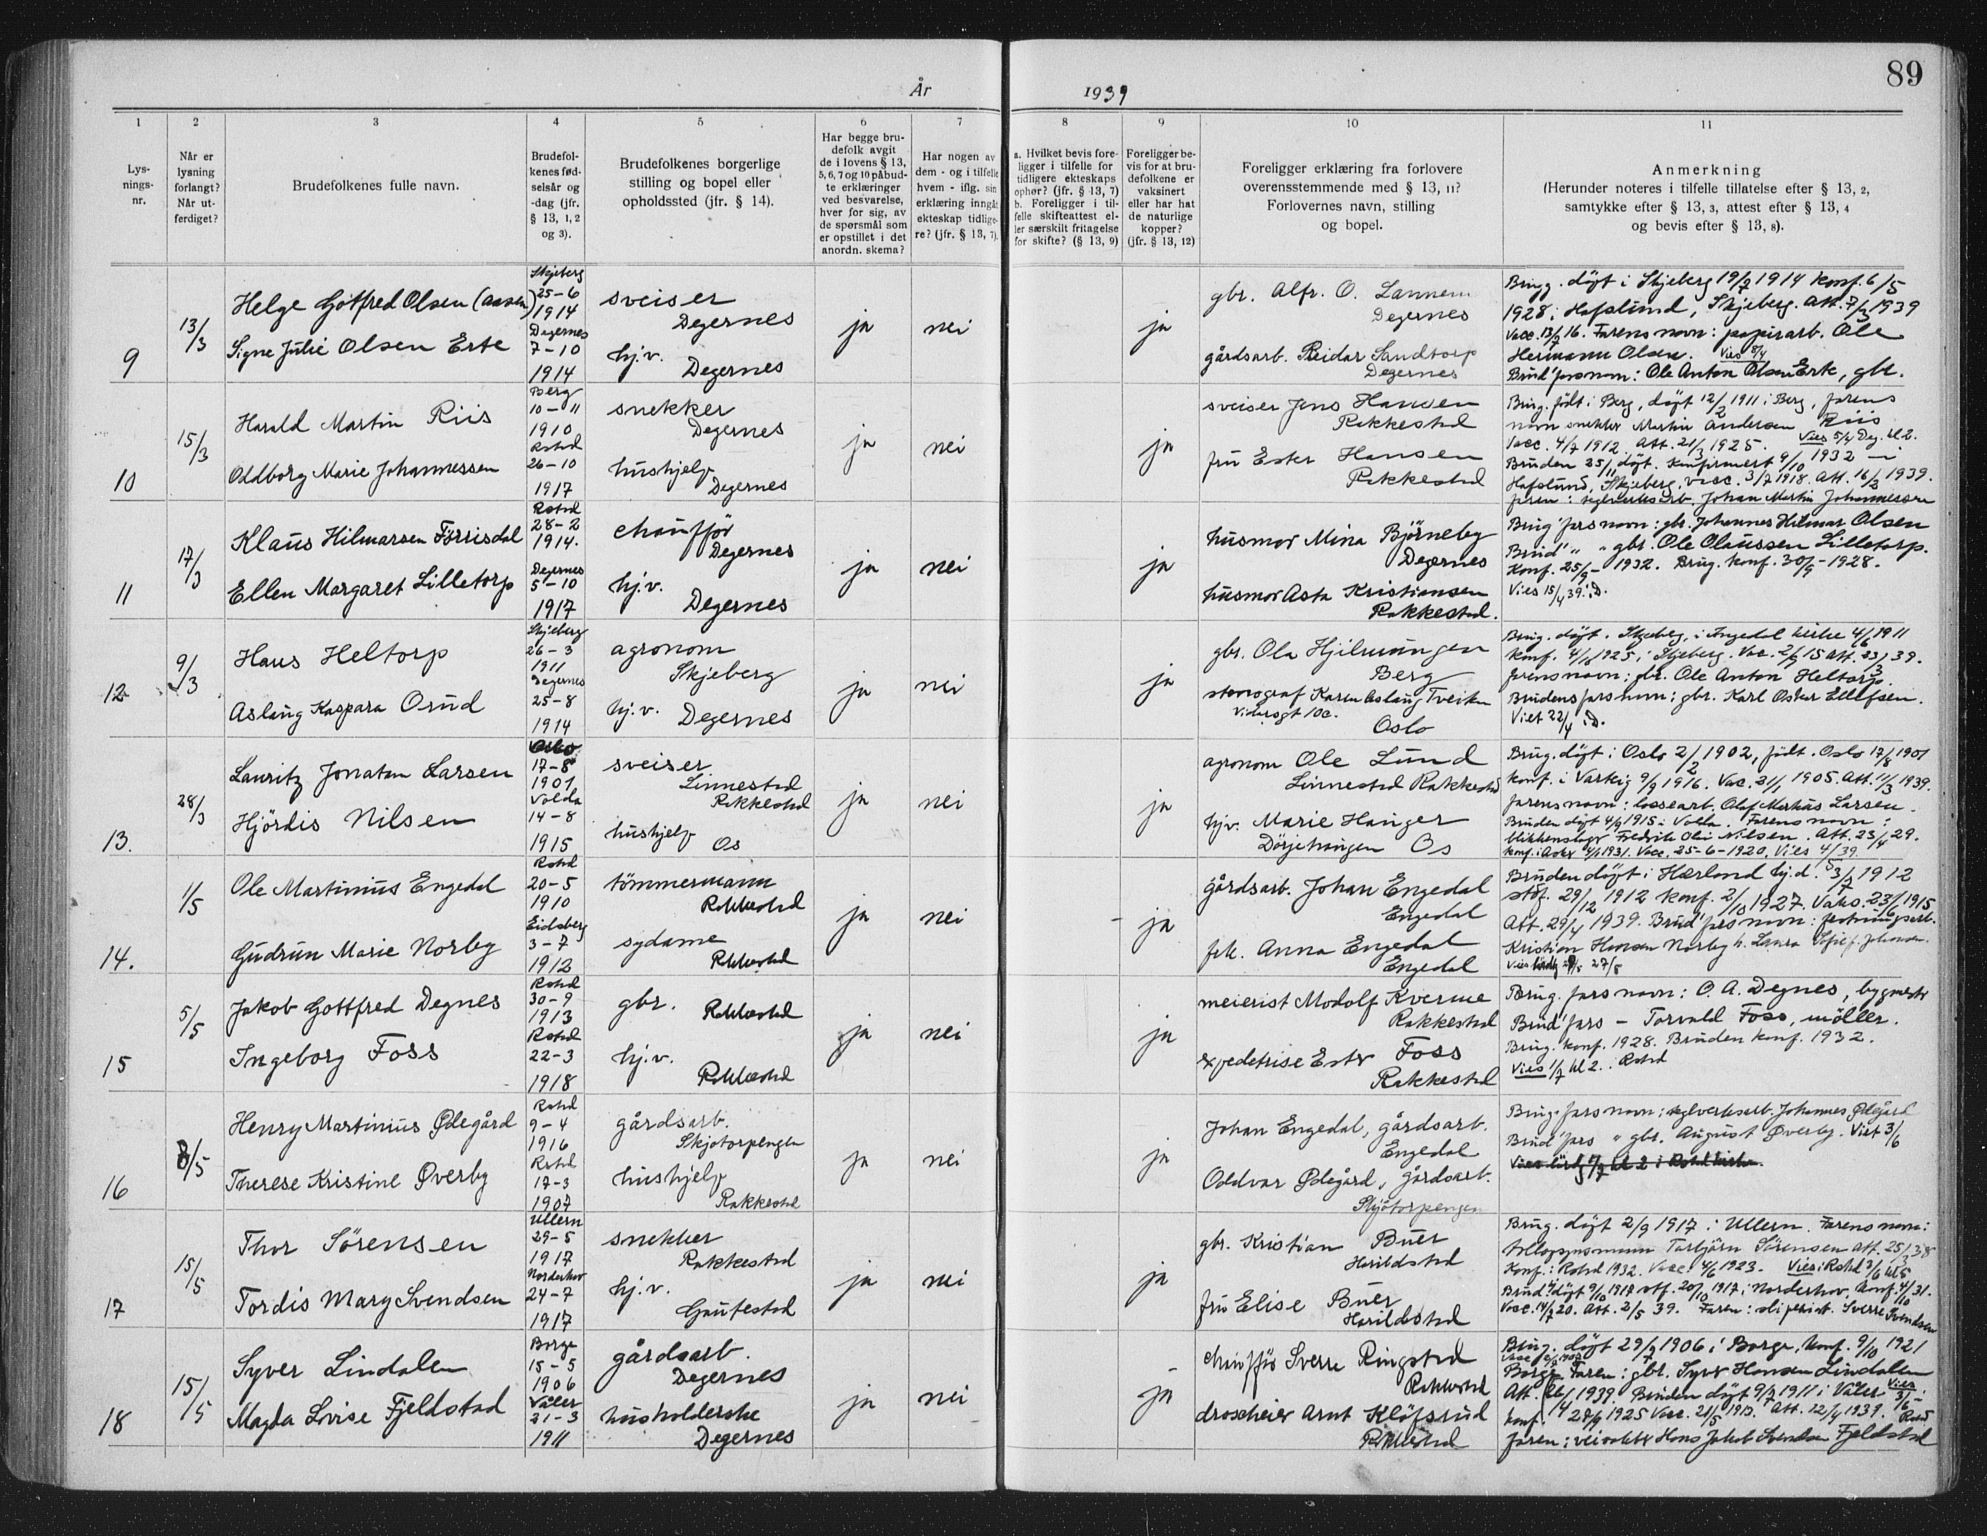 89
År 1939
1
2
3
4
5
6
7
8
9
10
11
Lys-
nings-
nr.
Når er
lysning
forlangt?
Når ut-
ferdiget?
Brudefolkenes fulle navn.
Brudefol-
kenes fød-
selsår og
-dag (jfr.
§ 13, 1, 2
og 3).
Brudefolkenes borgerlige
stilling og bopel eller
opholdssted (jfr. § 14).
Har begge bru-
defolk avgit
de i lovens § 13,
5, 6, 7 og 10 påbud-
te erklæringer
ved besvarelse,
hver for sig, av
de spørsmål som
er opstillet i det
anordn. skema?
Har nogen av
dem - og i tilfelle
hvem - iflg. sin
erklæring inngåt
ekteskap tidlige-
re? (jfr. § 13, 7).
a. Hvilket bevis fore-
ligger i tilfelle for
tidligere ekteskaps
ophør? (jfr. § 13, 7)
b. Foreligger i til-
felle skifteattest el-
ler særskilt fritagelse
for skifte? (§ 13, 9)
Foreligger be-
vis for at bru-
defolkene er
vaksinert
eller har hat
de naturlige
kopper?
(jfr. § 13, 12)
Foreligger erklæring fra forlovere
overensstemmende med § 13, 11?
Forlovernes navn, stilling
og bopel.
Anmerkning
(Herunder noteres i tilfelle tillatelse efter § 13, 2,
samtykke efter § 13, 3, attest efter § 13, 4
og bevis efter § 13, 8).
9
13/3
Helge Gotfred Olsen (Aasen)
Signe Julie Olsen Erte
Skjeberg
25-6
1914
Degernes
7-10
1914
sveiser
Degernes
hj.v.
Degernes
ja
nei
ja
gbr. Alfr. O. Lannem
Degernes
gårdsarb. Reidar Sandtorp
Degernes
Brugg. døpt i Skjeberg 19/7 1914 konf. 6/5
1928 i Hafslund, Skjeberg. Att. 7/3 1939
Vacc. 13/7 16. Farens navn: papirarb. Ole
Hermann Olsen. Vies 8/4
Brud' fars navn: Ole Anton Olsen Erte, gbr.
10
15/3
Harald Martin Riis
Oldborg Marie Johannessen
Berg
10-11
1910
Rakkestad
26-10
1917
snekker
Degernes
hushjelp
Degernes
ja
nei
ja
sveiser Jens Hansen
Rakkestad
fru Ester Hansen
Rakkestad
Brug. født i Berg, døpt 12/2 1911 i Berg, farens
navn snekker Martin Andersen Riis
Vacc. 4/7 1912. Att. 21/3 1925. Vies 5/4 Deg. kl 2.
Bruden 25/11 døpt. Konfirmert 9/10 1932 i
Hafslund, Skjeberg, vacc. 3/7 1918. Att. 16/3 1939.
faren: teglverksarb. Johan Martin Johannessen
11
17/3
Klaus Hilmarsen Førrisdal
Ellen Margaret Lilletorp
Rakkestad
28-2
1914.
Degernes
5-10
1917
chauffør
Degernes
hj.v.
Degernes
ja
nei
ja
husmor Mina Bjørneby
Degernes
husmor Asta Kristiansen
Rakkestad.
Brug' fars navn: gbr. Johannes Hilmar Olsen
Brud' " " gbr. Ole Olaussen Lilletorp.
Konf. 25/9 - 1932. Brug. konf. 30/9-1928.
Vies 15/4 39 i D.
12
9/3
Hans Heltorp
Aslaug Kaspara Orud
Skjeberg
26-3
1911
Degernes
25-8
1914
agronom
Skjeberg
hj.v. Degernes
ja
nei
ja
gbr. Ola Hjilmungen
Berg
stenograf Karen Aslaug Tveiten
Oslo
Brug. døpt. Skjeberg, i Ingedal kirke 4/6 1911
konf. 4/10 1925 i Skjeberg. Vac. 2/9 15 Att. 23/3 39.
farens navn: gbr. Ole Anton Heltorp.
Brudens fars navn: gbr. Karl Oskar Ellefsen.
Viet 22/4 i D.
13.
28/3
Lauritz Jonatan Larsen
Hjördis Nilsen
Oslo
17-8
1901
Volda
14-8
1915
sveiser
Linnestad
Rakkestad
hushjelp
Os
ja
nei
ja
agronom Ole Lund
Linnestad Rakkestad
hjv. Marie Hauger
Os
Brug. døpt i Oslo 2/2 1902, født. Oslo 17/8 1901
konf. i Varteig 9/9 1916. Vac. 21/1 1905. Att. 11/3 1939.
farens navn: lossearb. Olaf Markus Larsen.
Bruden døpt 4/9 1915 i Volda. Farens navn:
blikkenslager Fredrik Olai Nilsen. Att. 23/4 29.
Vacc. 25-6-1920. Vies 4/39.
14.
1/5
Ole Martinius Engedal
Gudrun Marie Norby
Rakkestad
20-5
1910
Eidsberg
3-7
1912
tømmermann
Rakkestad
sydame
Rakkestad
ja
nei
ja
gårdsarb. Johan Engedal
Engedal
frk. Anna Engedal
Engedal
Bruden døpt i Hærland hj.d. 3/7 1912
stdf. 29/12 1912 konf. 2/10 1927. Vaks. 23/6 1915
Att. 29/4 1939. Brud' fars navn:
Kristian Hansen Norby h. Laura
27/5
15
5/5
Jakob Gottfred Degnes
Ingeborg Foss
Rakkestad
30-9
1913
Rakkestad
22-3
1918
gbr. Rakkestad
hj.v.
Rakkestad
ja
nei
ja
meierist Modolf Kverme
Rakkestad
expeditrise Ester Foss
Rakkestad
Brug. fars navn: O. A. Degnes, bygmester
Brud' fars - Torvald Foss, møller.
Brug. konf. 1928. Bruden konf. 1932.
Vies 1/7 kl 2. i Rakkestad
16
8/5
Henry Martinius Ødegård
Therese Kristine Øverby
Rakkestad
9-4
1916
Rakkestad
17-3
1907
gårdsarb.
Skjøtorpengen
hushjelp
Rakkestad
ja
nei
ja
Johan Engedal, gårdsarb.
Engedal
Oddvar Ødegård, gårdsarb.
Skjøtorpengen
Brug. fars navn: teglverksarb. Johannes Ødegård
Brud' fars " gbr. August Øverby. Viet 3/6
17
15/5
Thor Sörensen
Tordis Mary Svendsen
Ullern
29-5
1917
Norderhov
24-7
1917
snekker
Rakkestad
hj.v.
Gautestad
ja
nei
ja
gbr. Kristian Buer
Harildstad
fru Elise Buer
Harildstad
Brug. døpt 2/9 1917 i Ullern. Farens navn:
tollopsynsmann Torbjörn Sørensen att. 25/3 38
Konf. i Rakkestad 1932. Vacc. 4/6 1923. Vies i Rakkestad
Brud' døpt 9/10 1917 stdf. 20/10 1917 i Norderhov. Konf. 4/10 31.
Vacc. 14/7 20. Att. 2/5 39. Faren: sliperiarb. Sverre Svendsen
18
15/5
Syver Lindalen
Magda Lovise Fjeldstad
Borge
15-5
1906
Våler
21-3
1911
gårdsarb.
Degernes
husholderske
Degernes
ja
nei
ja
chauffør Sverre Ringstad
Rakkestad
droscheier Arnt Kløfsrud
Rakkestad
Brug. døpt 29/7 1906 i Borge, konf. 9/10 1921
Borge. Faren: gbr. Syver Hansen Lindalen
Att. 26/4 1939. Bruden døpt 9/7 1911 i Våler Vies 31/6
konf. 27/9 1925 Vacc. 21/5 1913. Att. 12/4 1939. Rakkestad
faren: veivokter Hans Jakob Svendsen Fjeldstad